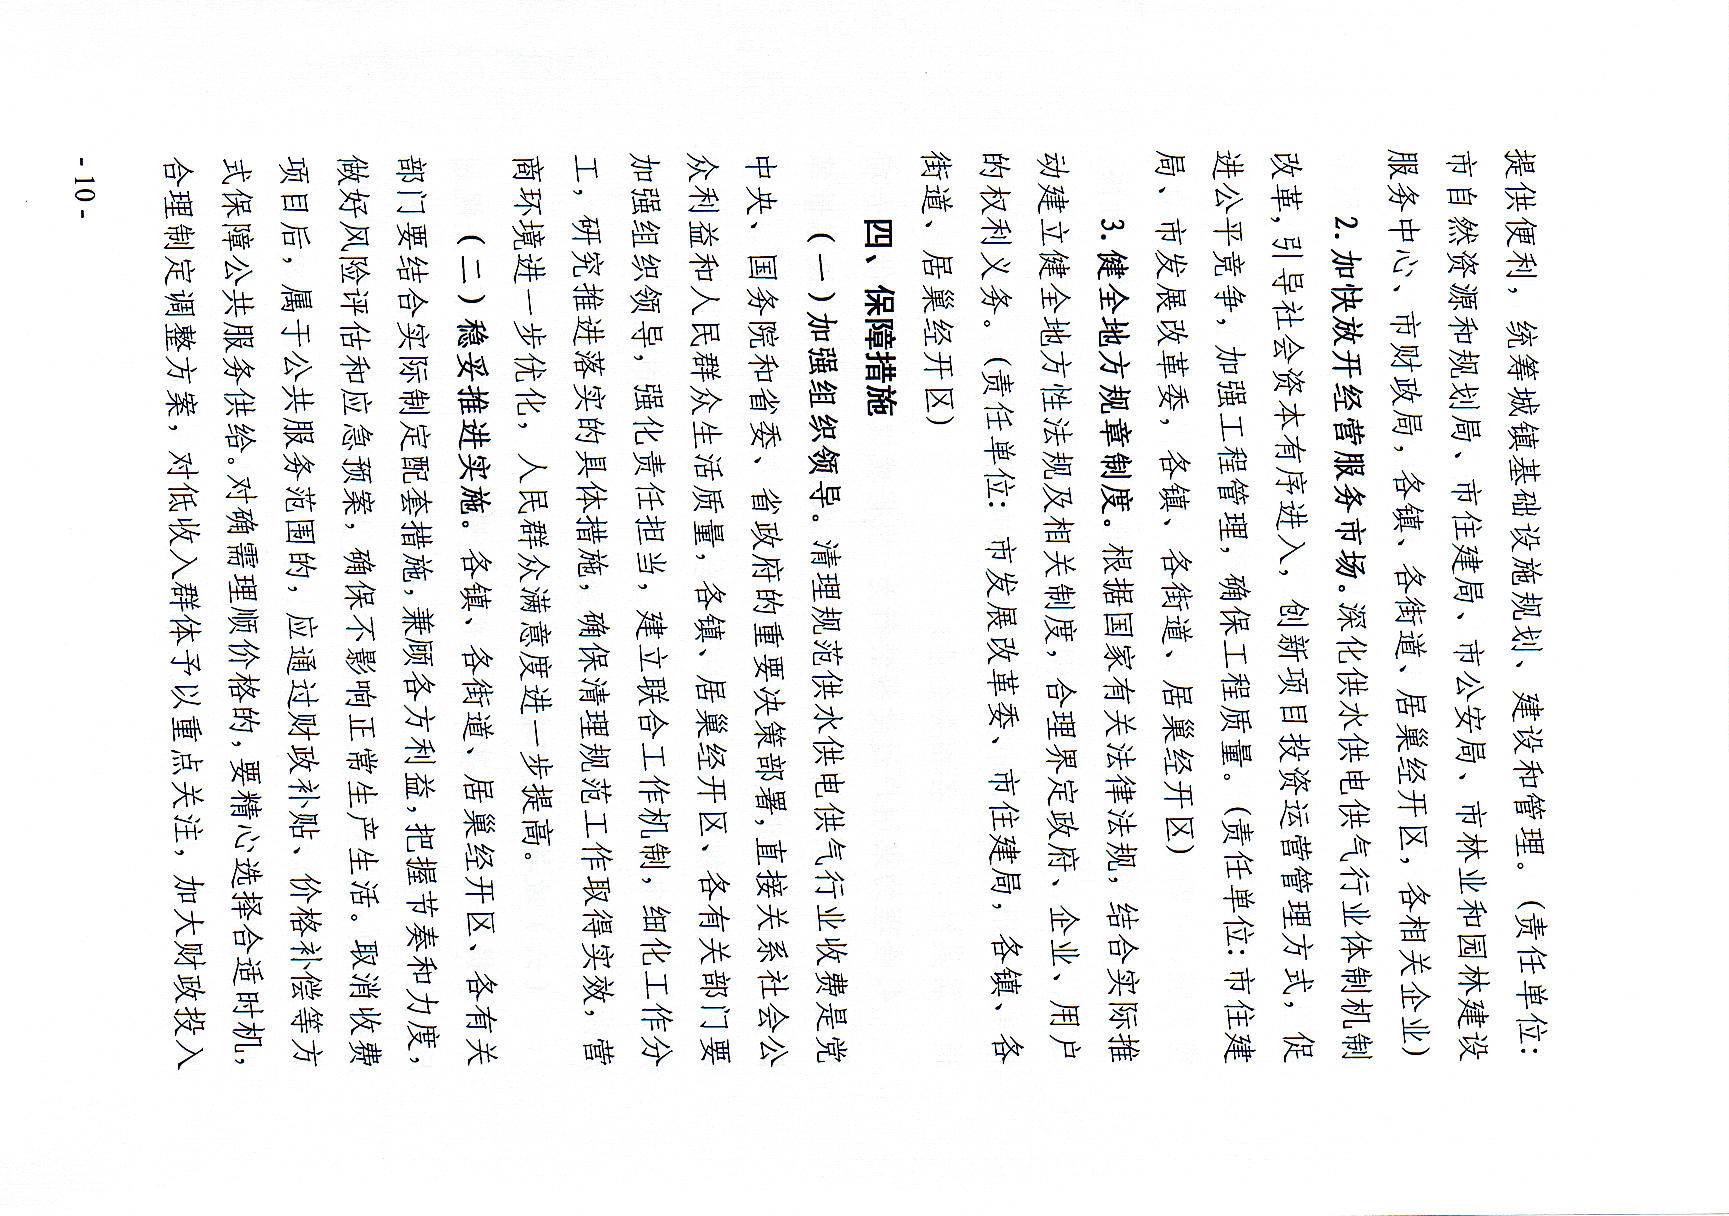 提供便利，统筹城镇基础设施规划、建设和管理。（责任单位：
市自然资源和规划局、市住建局、市公安局、市林业和园林建设
服务中心、市财政局，各镇、各街道、居巢经开区，各相关企业）
2.加快放开经营服务市场。深化供水供电供气行业体制机制
改革，引导社会资本有序进入，创新项目投资运营管理方式，促
进公平竞争，加强工程管理，确保工程质量。（责任单位：市住建
局、市发展改革委，各镇、各街道、居巢经开区）
3.健全地方规章制度。根据国家有关法律法规，结合实际推
动建立健全地方性法规及相关制度，合理界定政府、企业、用户
的权利义务。（责任单位：市发展改革委、市住建局，各镇、各
街道、居巢经开区）
四、保障措施
（一）加强组织领导。清理规范供水供电供气行业收费是党
中央、国务院和省委、省政府的重要决策部署，直接关系社会公
众利益和人民群众生活质量，各镇、居巢经开区、各有关部门要
加强组织领导，强化责任担当，建立联合工作机制，细化工作分
工，研究推进落实的具体措施，确保清理规范工作取得实效，营
商环境进一步优化，人民群众满意度进一步提高。
（二）稳妥推进实施。各镇、各街道、居巢经开区、各有关
部门要结合实际制定配套措施，兼顾各方利益，把握节奏和力度，
做好风险评估和应急预案，确保不影响正常生产生活。取消收费
项目后，属于公共服务范围的，应通过财政补贴、价格补偿等方
式保障公共服务供给。对确需理顺价格的，要精心选择合适时机，
合理制定调整方案，对低收入群体予以重点关注，加大财政投入
- 10 -